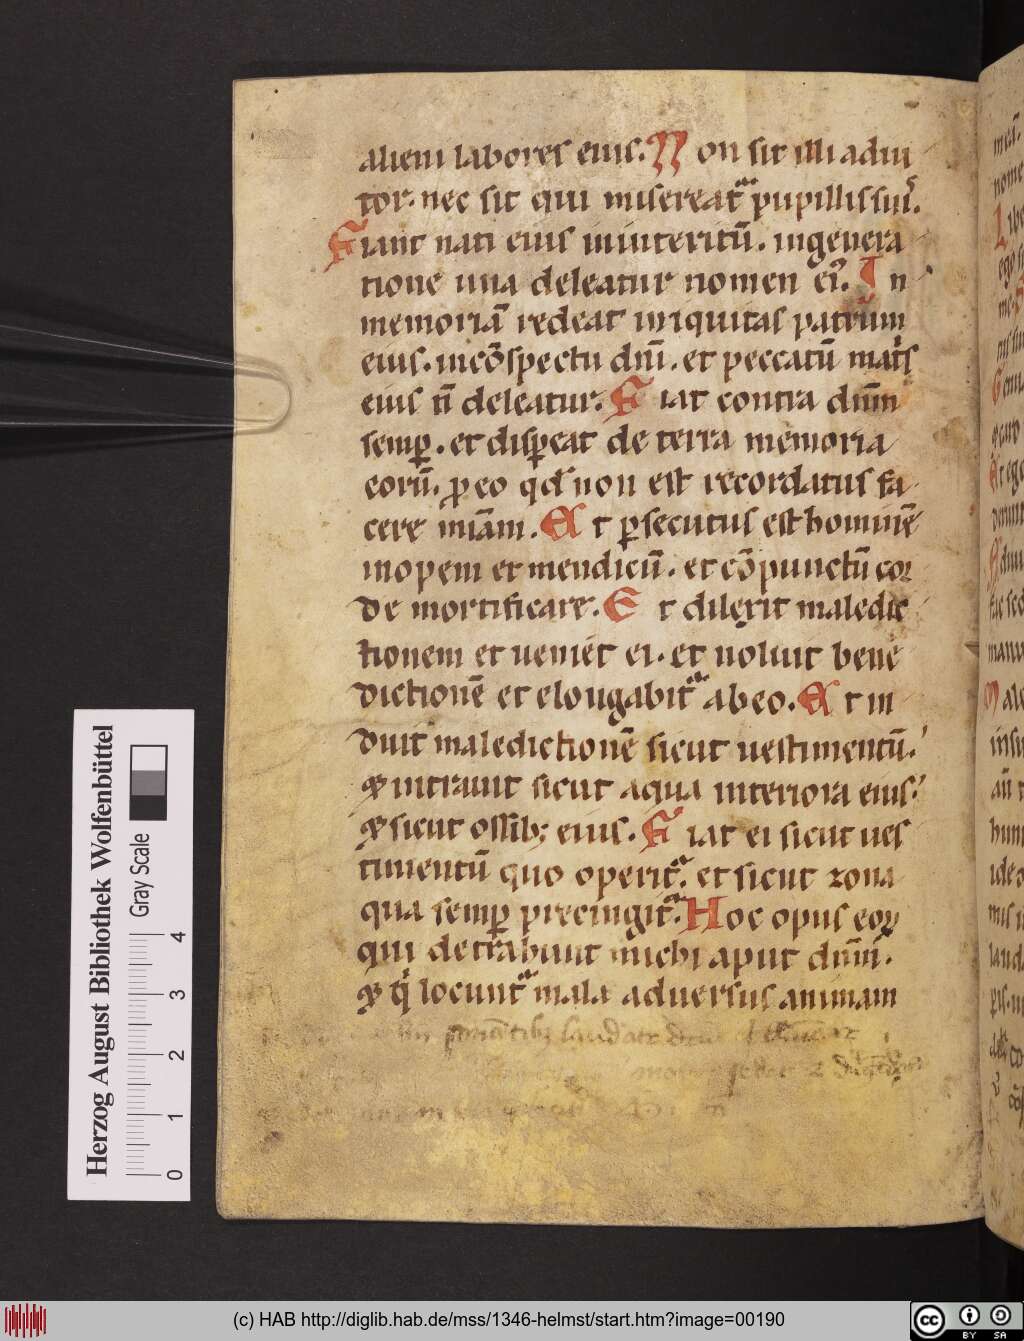 alieni labores eius. Non sit illi adiu
tor. nec sit qui misereat᷑ pupillis sui᷒.
Fiant nati eius ininteritū. ingenera
tione una deleatur nomen ei᷒. In
memoriā redeat iniquitas patrum
eius. incōspectu dn̄i. et peccatū mat̄s
eius n̄ deleatur. Fiat contra dn̄m
semꝑ. et disꝑeat de terra memoria
eorū. ꝓ eo qd̄ non est recordatus fa
cere miām. Et ꝑsecutus est hominē
inopem et mendicū. et cōpunctū cor
de mortificare. Et dilexit maledic
tionem et ueniet ei. et noluit bene
dictionē et elongabit᷑ ab eo. Et in
duit maledictionē sicut uestimentū.
⁊ intrauit sicut aqua interiora eius.
⁊ sicut ossib; eius. Fiat ei sicut ues
timentū quo operit᷑. et sicut zona
qua semꝑ precingit᷑. Hoc opus eoꝝ
qui detrahunt michi aput dn̄m.
⁊ qͥ locunt᷑ mala aduersus animam
Herzog August Bibliothek Wolfenbüttel
Gray Scale
0 1 2 3 4
(c) HAB http://diglib.hab.de/mss/1346-helmst/start.htm?image=00190
cc BY SA